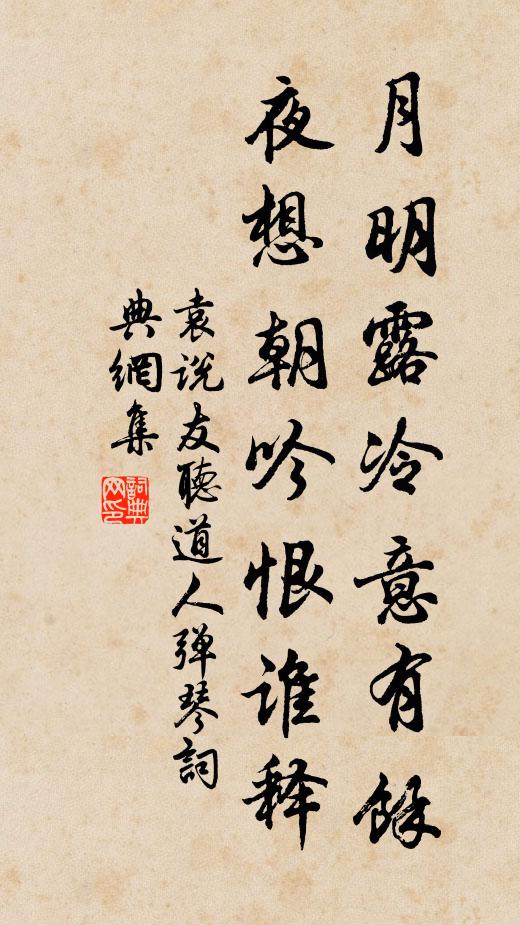 月明露冷意有餘
夜想朝吟恨谁释
袁说友聽道人弹琴詞
典網集
詞典网印